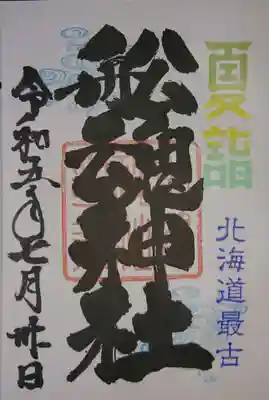 夏詣
北海道最古
舩魂神社
令和五年七月卅日